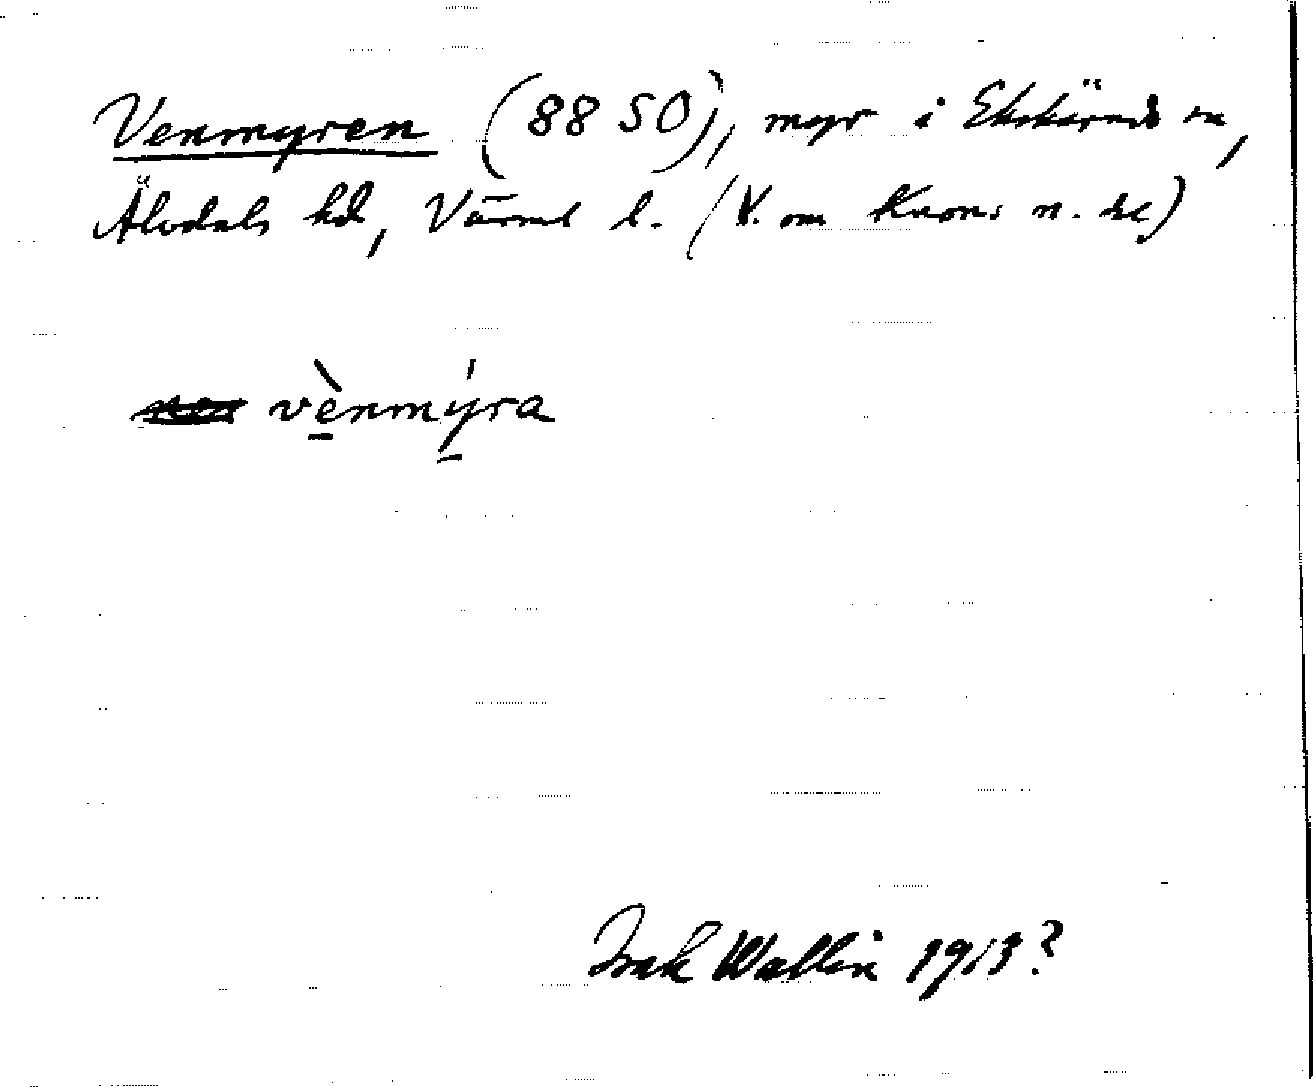 Venmyren (8850), myr i Ekshärads sn,
Älvdals hd, Värml l. (V. om Knons n. del)
vènmýra
Isak Wallin 1913?